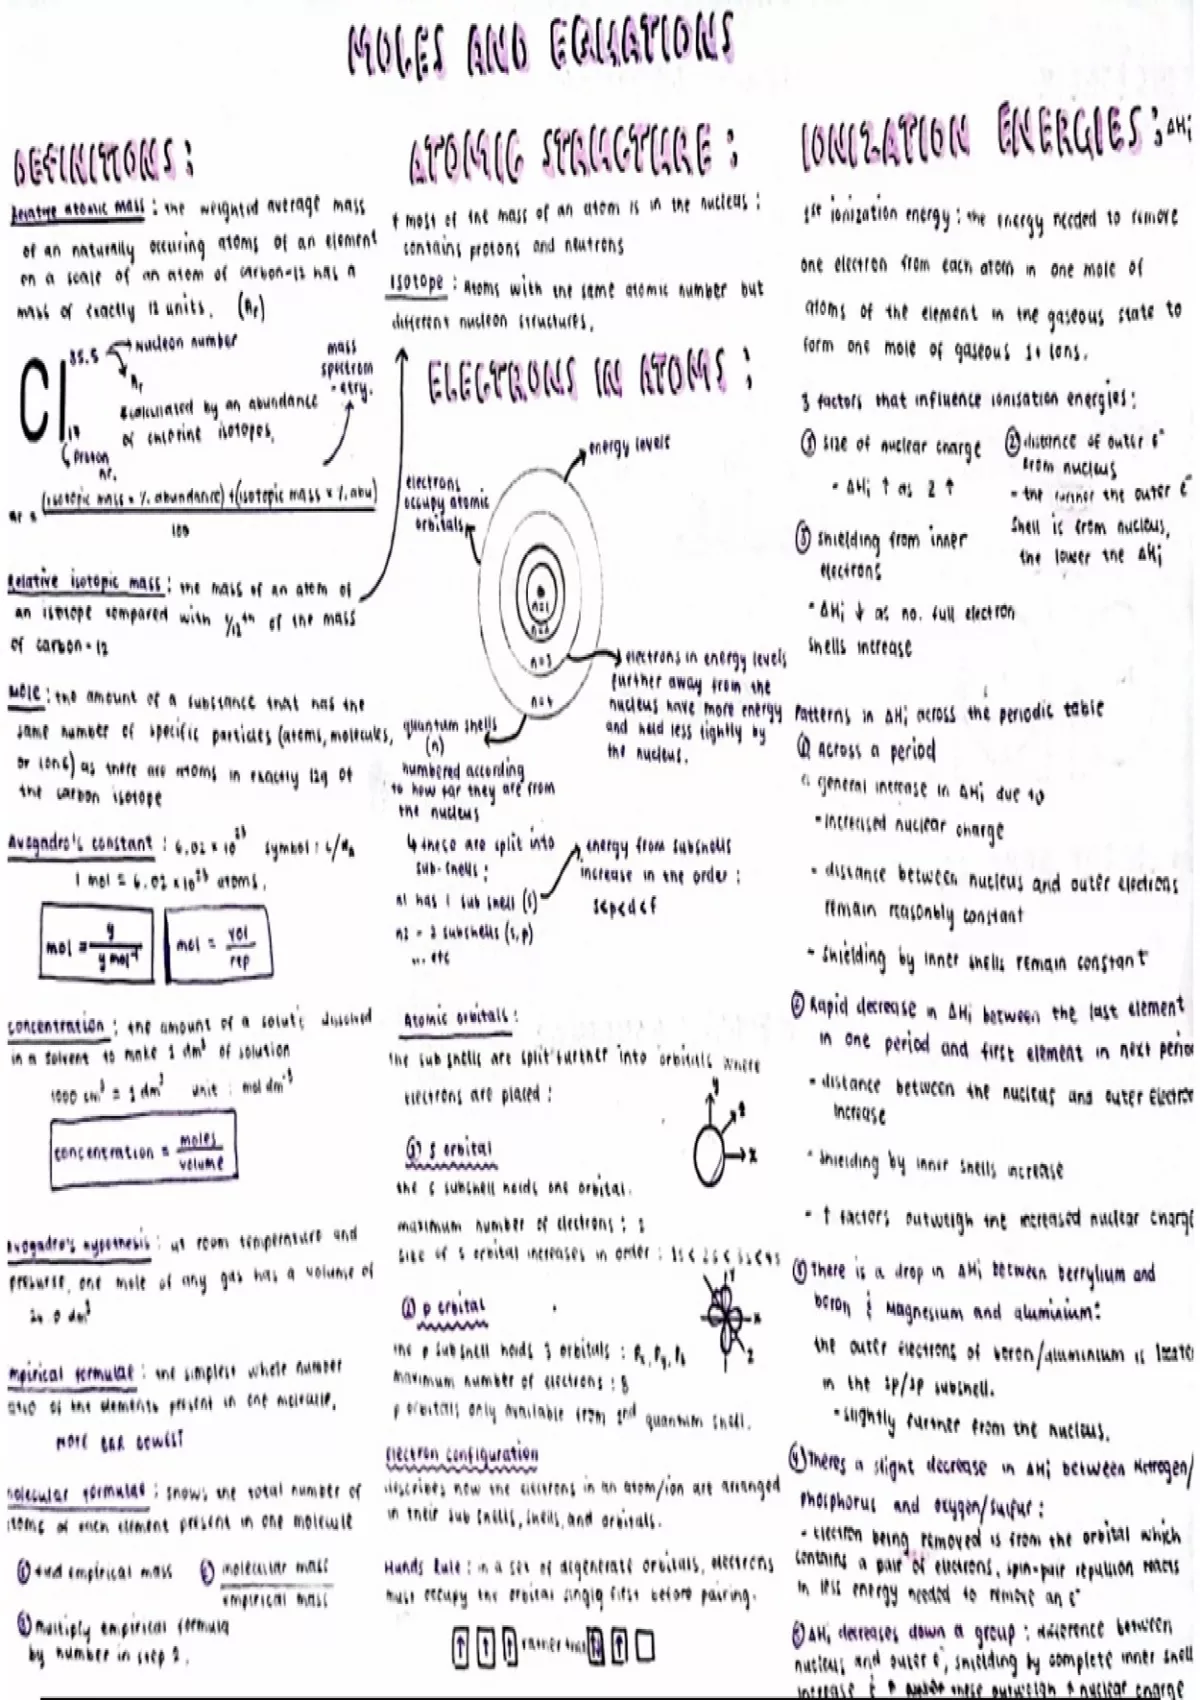 MOLES AND EQUATIONS
DEFINITIONS:
Relative atomic mass : the weighted average mass
of an naturally occuring atoms of an element
on a scale of an atom of carbon-12 has a
mass of exactly 12 units. (Ar)
35.5 → Nucleon number
Ar
Cl
calculated by an abundance
of chlorine isotopes.
Proton
nr.
mass
spectrom
-etry.
Ar = (isotopic mass × % abundance) + (isotopic mass × % abu)
100
Relative isotopic mass : the mass of an atom of
an isotope compared with 1/12th of the mass
of carbon-12
Mole : the amount of a substance that has the
same number of specific particles (atoms, molecules,
or ions) as there are atoms in exactly 12g of
the carbon isotope
Avogadro's constant : 6.02 × 10²³ symbol : L/
1 mol = 6.02 × 10²³ atoms.
mol = g
g mol⁻¹
mol = vol
concentration : the amount of a solute dissolved
in a solvent to make 1 dm³ of solution
1000 cm³ = 1 dm³ unit : mol dm⁻³
concentration = moles
volume
Avogadro's hypothesis : at room temperature and
pressure, one mole of any gas has a volume of
24.0 dm³
mpirical formulae : the simplest whole number
atio of the elements present in one molecule.
molecular formulae : shows the total number of
atoms of each element present in one molecule
① find empirical mass
② molecular mass
empirical mass
③ multiply empirical formula
by number in step 2.
ATOMIC STRUCTURE :
* most of the mass of an atom is in the nucleus :
contains protons and neutrons
Isotope : Atoms with the same atomic number but
different nucleon structures.
ELECTRONS IN ATOMS :
energy levels
electrons
occupy atomic
orbitals
n=1
n=2
n=3
n=4
electrons in energy levels
further away from the
nucleus have more energy
and held less tightly by
the nucleus.
quantum shells
(n)
numbered according
to how far they are from
the nucleus
↳ these are split into
sub-shells :
n1 has 1 sub shell (s)
n2 - 2 subshells (s, p)
... etc
energy from subshells
increase in the order :
s<p<d<f
Atomic orbitals :
the sub shells are split further into orbitals where
electrons are placed :
y
z
x
① s orbital
the s subshell holds one orbital.
maximum number of electrons : 2
size of s orbital increases in order : 1s < 2s < 3s < 4s
② p orbital
Y
x
z
the p subshell holds 3 orbitals : Px, Py, Pz
maximum number of electrons :
p orbitals only available from 2nd quantum shell.
Electron configuration
describes how the electrons in an atom/ion are arranged
in their sub shells, shells, and orbitals.
Hunds Rule : in a set of degenerate orbitals, electrons
must occupy the orbital singly first before pairing.
↑ ↑ ↑ rather than ↑↓ ↑
IONIZATION ENERGIES : ΔHi
1st ionization energy : the energy needed to remove
one electron from each atom in one mole of
atoms of the element in the gaseous state to
form one mole of gaseous 1+ ions.
3 factors that influence ionisation energies :
① size of nuclear charge
- ΔHi ↑ as Z ↑
② distance of outer e⁻
from nucleus
- the further the outer e⁻
shell is from nucleus,
the lower the ΔHi
③ shielding from inner
electrons
- ΔHi ↓ as no. full electron
shells increase
Patterns in ΔHi across the periodic table
① Across a period
general increase in ΔHi due to
- increased nuclear charge
- distance between nucleus and outer electrons
remain reasonbly constant
- shielding by inner shells remain constant
② Rapid decrease in ΔHi between the last element
in one period and first element in next perio
- distance between the nucleus and outer electron
increase
- shielding by inner shells increase
- ↑ factors outweigh the increased nuclear charge
③ there is a drop in ΔHi between berrylium and
boron & magnesium and aluminium :
the outer electrons of boron/aluminium is locate
in the 2p/3p subshell.
- slightly further from the nucleus.
④ Theres a slight decrease in ΔHi between Nitrogen/
phosphorus and oxygen/sulfur :
- electron being removed is from the orbital which
contains a pair of electrons, spin-pair repulsion
in less energy needed to remove an e⁻
⑤ ΔHi decreases down a group : difference between
nucleus and outer e⁻, shielding by complete inner shell
increase & these outweigh ↑ nuclear charge